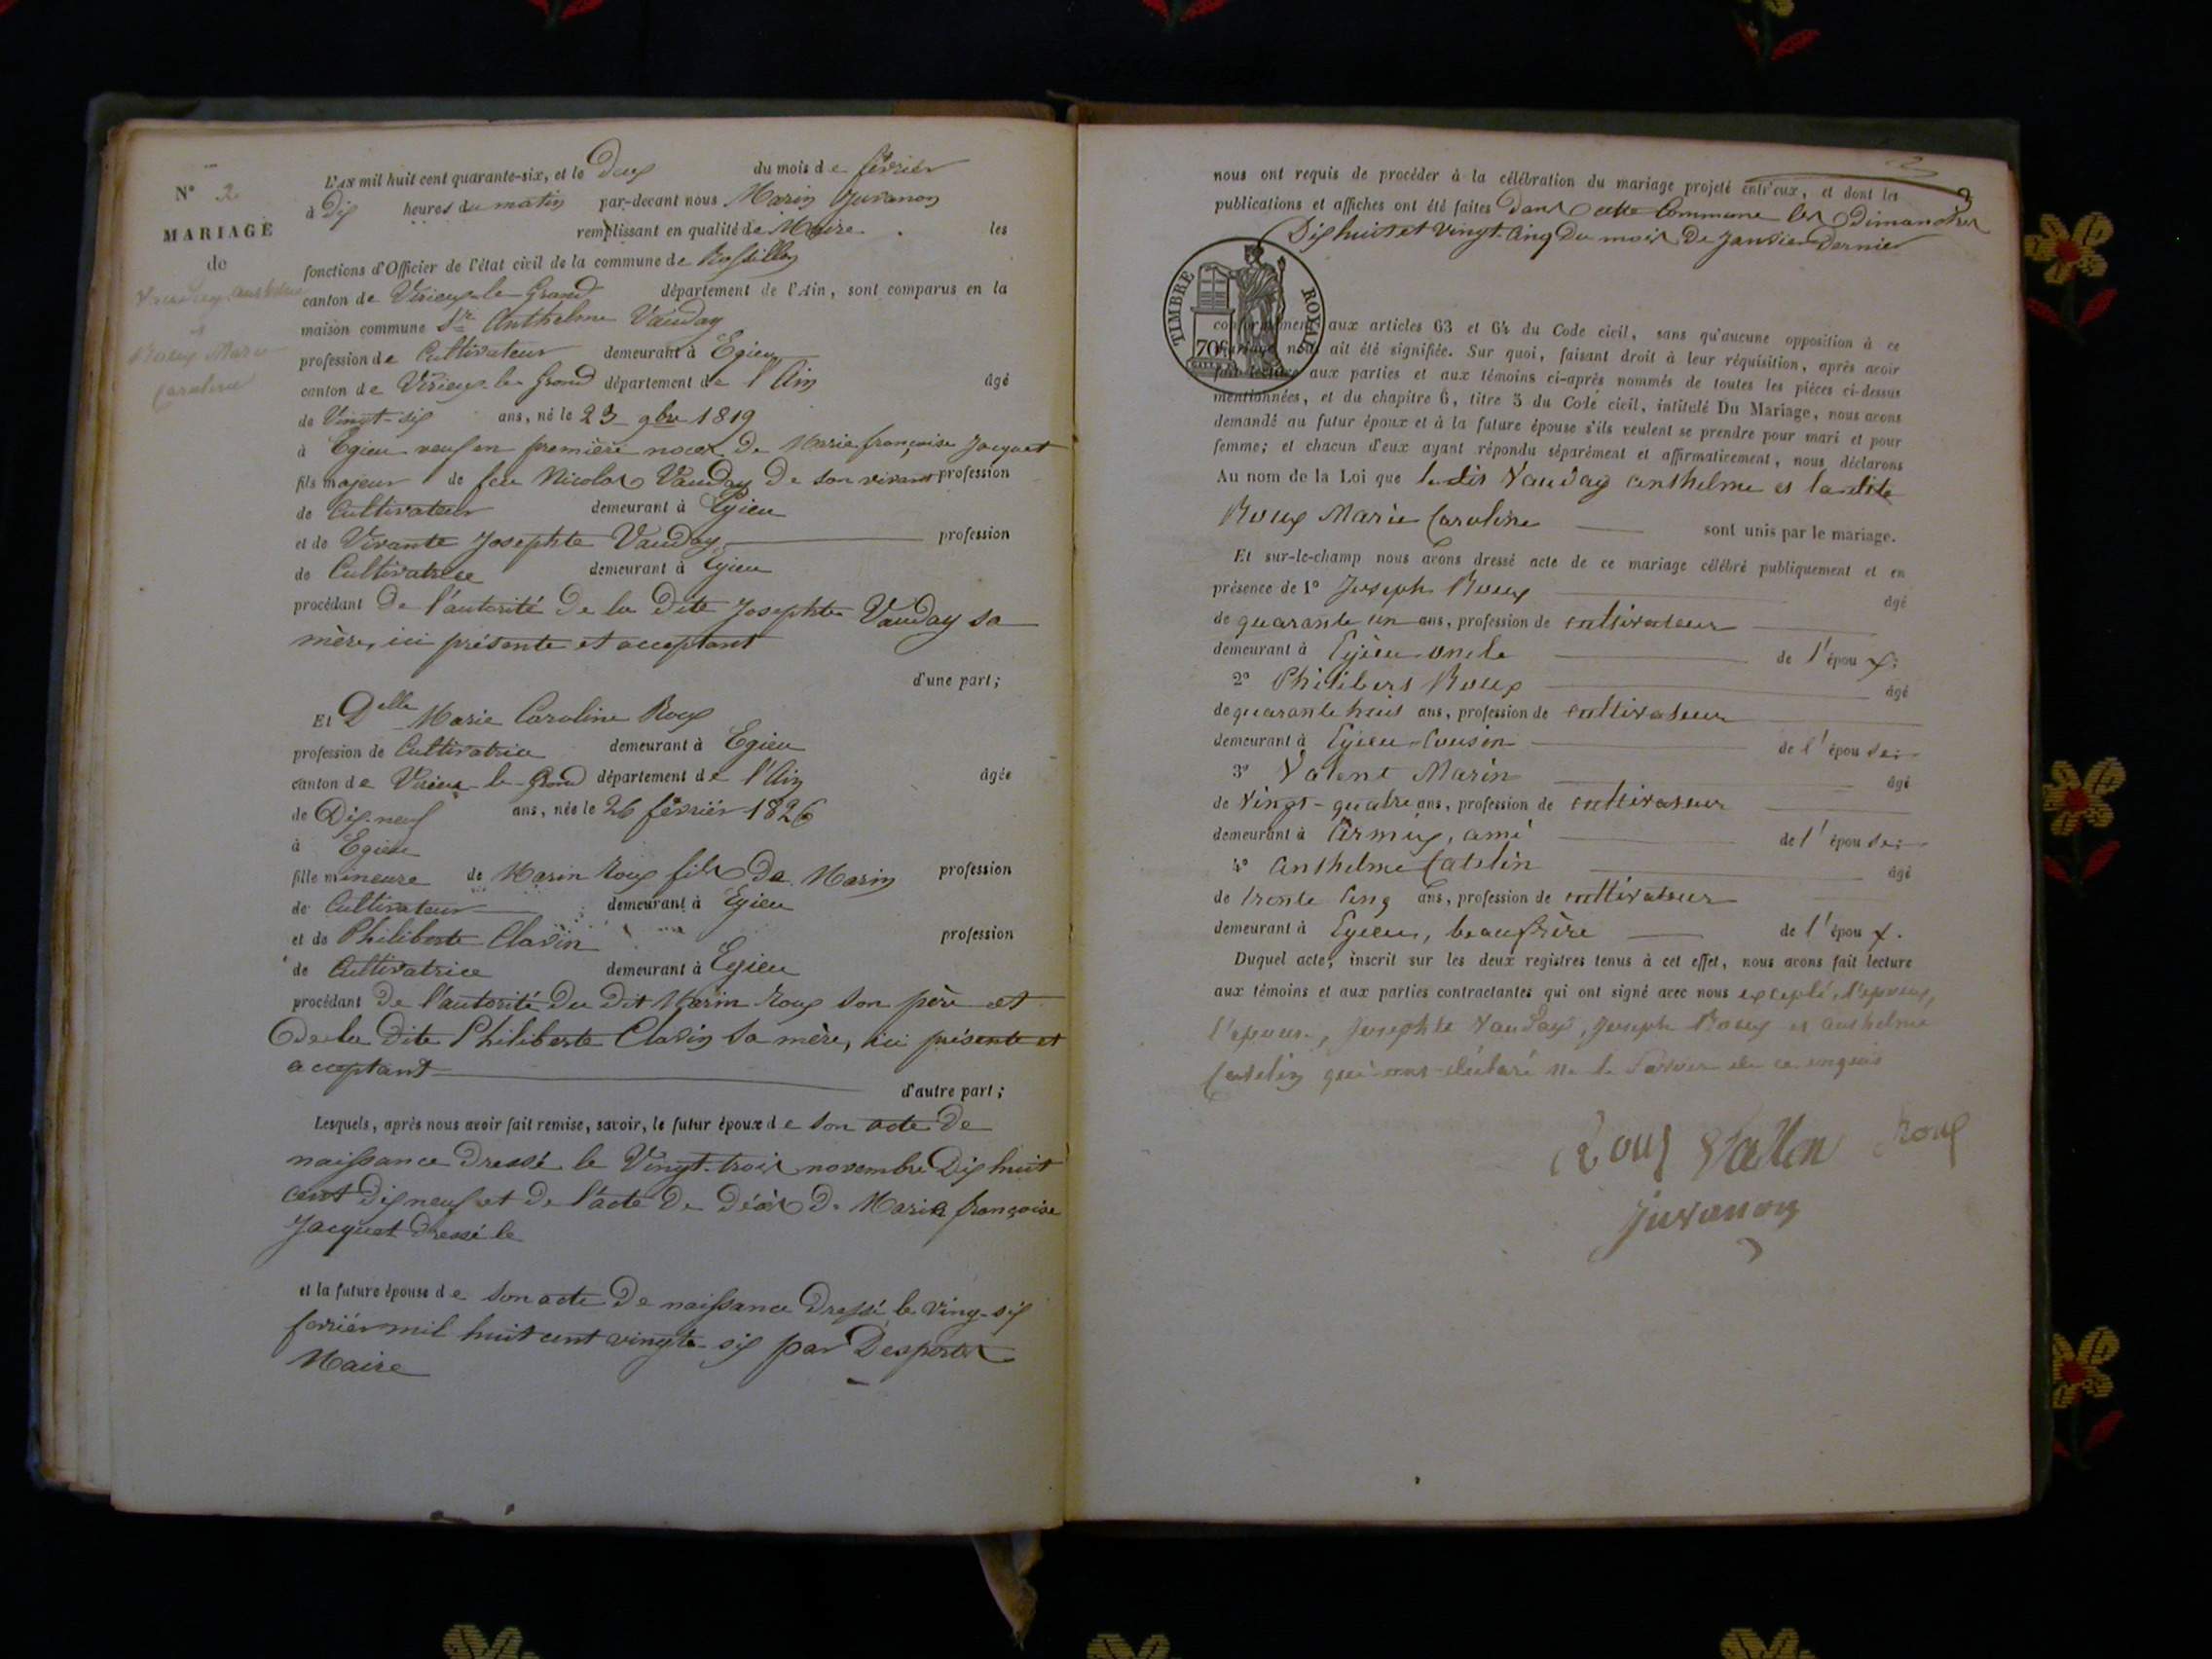 N° 2
MARIAGE
de
Vauday Anthelme
et
Roux Marie
Caroline
L'AN mil huit cent quarante-six, et le Deux du mois de février
à Dix heures du matin par-devant nous Marin Juvanon
remplissant en qualité de Maire. les
fonctions d'Officier de l'état civil de la commune de Rossillon
canton de Virieux-le-Grand département de l'Ain, sont comparus en la
maison commune Sr. Anthelme Vauday
profession de Cultivateur demeurant à Egieu
canton de Virieux-le-Grand département de l'Ain âgé
de Vingt-six ans, né le 23 9bre 1819
à Egieu veuf en première noces de Marie françoise Jacquet
fils majeur de feu Nicolas Vauday De son vivant profession
de Cultivateur demeurant à Egieu
et de Vivante Josephte Vauday profession
de Cultivatrice demeurant à Egieu
procédant De l'autorité De la Dite Josephte Vauday sa
mère, ici présente et acceptant
d'une part;
Et Delle Marie Caroline Roux
profession de Cultivatrice demeurant à Egieu
canton de Virieu-le-Grand département de l'Ain âgée
de Dix-neuf ans, née le 26 février 1826
à Egieu
fille mineure de Marin Roux fils De Marin profession
de Cultivateur demeurant à Egieu
et de Philiberte Clavin profession
de Cultivatrice demeurant à Egieu
procédant De l'autorité Du Dit Marin Roux son père et
De la Dite Philiberte Clavin sa mère, ici présente et
acceptant
d'autre part;
Lesquels, après nous avoir fait remise, savoir, le futur époux de son acte De
naissance Dressé le Vingt-trois novembre Dix huit
cent Dix neuf et De l'acte De Décès De Marie françoise
Jacquet Dressé le
et la future épouse de son acte De naissance Dressé le Ving-six
février mil huit cent vingte-six par Desportes
Maire
2
nous ont requis de procéder à la célébration du mariage projeté entr'eux, et dont les
publications et affiches ont été faites Dans cette Commune les Dimanches
Dix huit et Vingt-Cinq Du mois De Janvier Dernier
TIMBRE ROYAL
70c
conformément aux articles 63 et 64 du Code civil, sans qu'aucune opposition à ce
mariage nous ait été signifiée. Sur quoi, faisant droit à leur réquisition, après avoir
fait lecture aux parties et aux témoins ci-après nommés de toutes les pièces ci-dessus
mentionnées, et du chapitre 6, titre 5 du Code civil, intitulé Du Mariage, nous avons
demandé au futur époux et à la future épouse s'ils veulent se prendre pour mari et pour
femme; et chacun d'eux ayant répondu séparément et affirmativement, nous déclarons
Au nom de la Loi que ledit Vauday anthelme et ladite
Roux Marie Caroline sont unis par le mariage.
Et sur-le-champ nous avons dressé acte de ce mariage célébré publiquement et en
présence de 1° Joseph Roux âgé
de quarante un ans, profession de cultivateur
demeurant à Egieu oncle de l'époux;
2° Philibert Roux âgé
de quarante huit ans, profession de cultivateur
demeurant à Egieu Cousin de l'épouse;
3° Valent Marin âgé
de Vingt-quatre ans, profession de cultivateur
demeurant à Armix, ami de l'épouse;
4° Anthelme Catelin âgé
de trente cinq ans, profession de cultivateur
demeurant à Egieu, beaufrère de l'époux.
Duquel acte, inscrit sur les deux registres tenus à cet effet, nous avons fait lecture
aux témoins et aux parties contractantes qui ont signé avec nous excepté, l'époux,
l'épouse, Josephte Vauday, Joseph Roux et anthelme
Catelin qui ont déclaré ne le savoir de ce enquis
Roux Roux
Juvanon